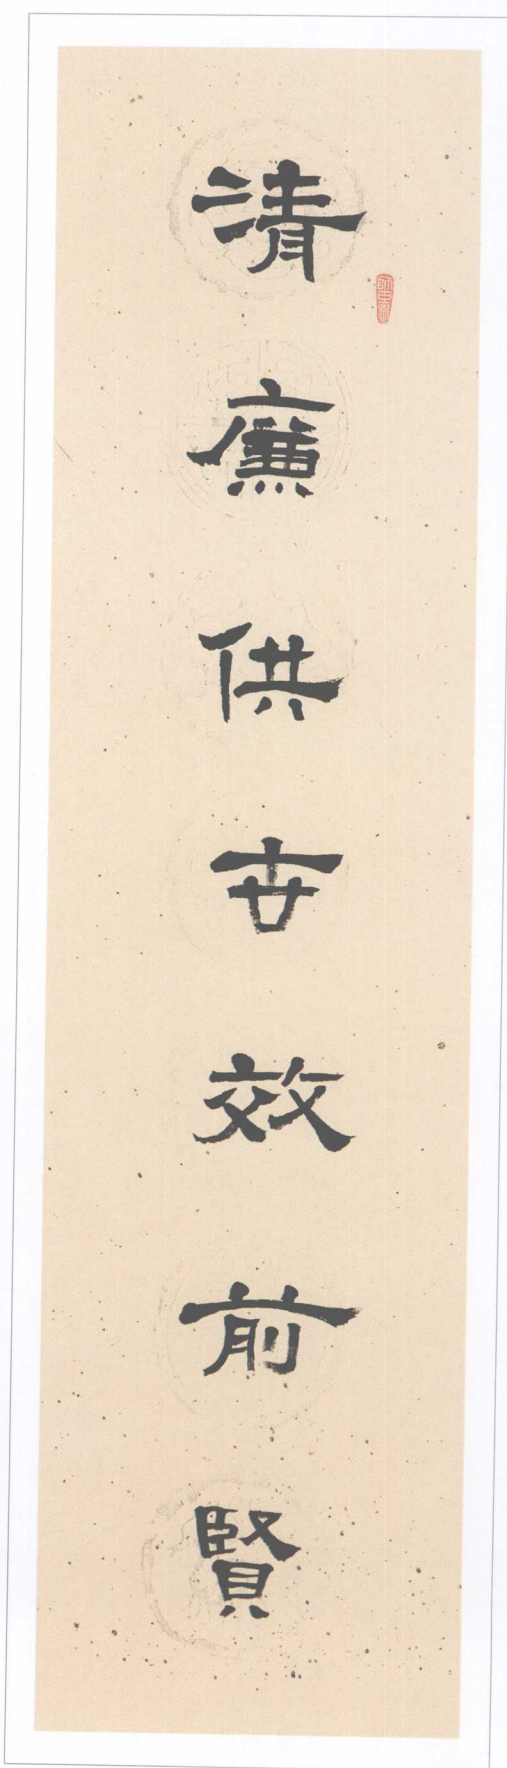 清廉供世效前賢